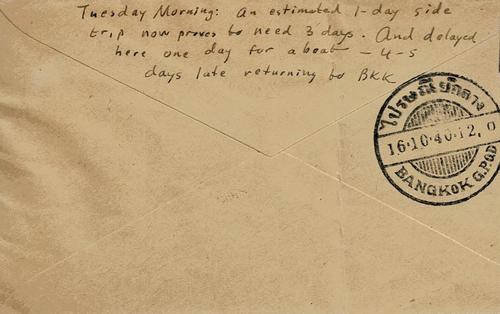 Tuesday Morning: An estimated 1-day side
trip now proves to need 3 days. And delayed
here one day for a boat - 4-5
days late returning to BKK
ไปรษณีย์กลาง
16·10·40·12,0
BANGKOK G.P.O